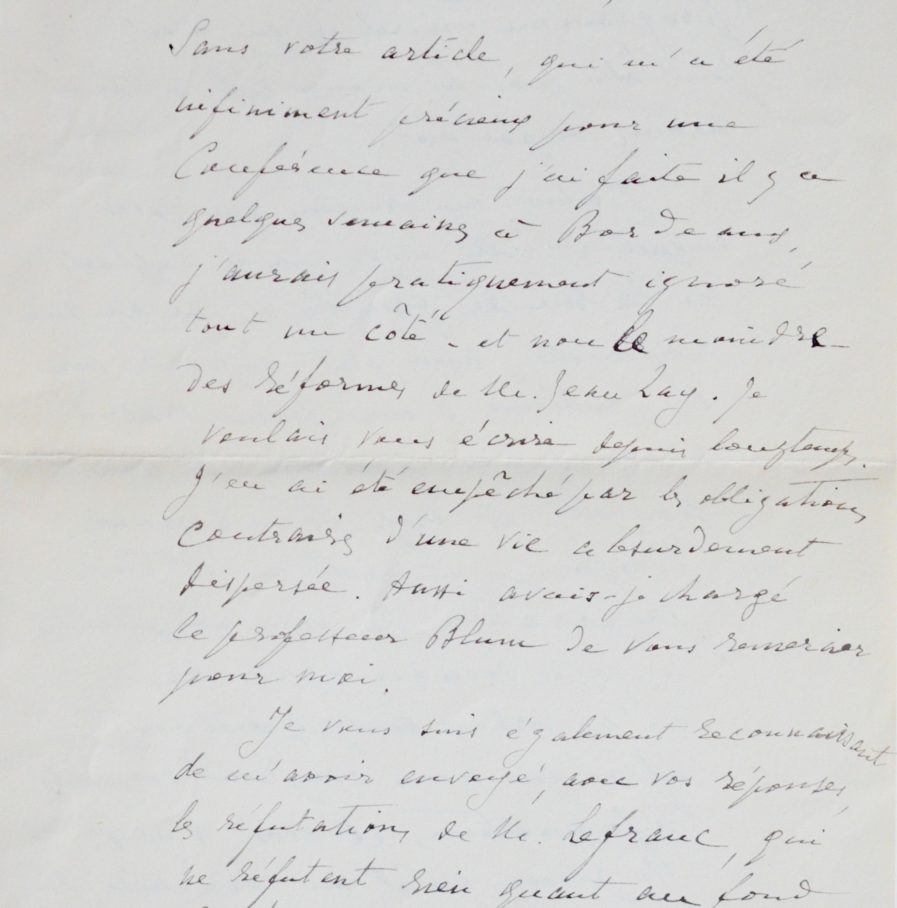 Sans votre article, qui m'a été
infiniment précieux pour une
Conférence que j'ai faite il y a
quelques semaines à Bordeaux,
j'aurais pratiquement ignoré
tout un côté - et non le moindre -
des réformes de M. Jean Zay. Je
voulais vous écrire depuis longtemps.
J'en ai été empêché par les obligations
contraires d'une vie absurdement
dispersée. Aussi avais-je chargé
le professeur Blum de vous remercier
pour moi.
Je vous suis également reconnaissant
de m'avoir envoyé, avec vos réponses,
les réfutations de M. Lefranc, qui
ne réfutent rien quant au fond